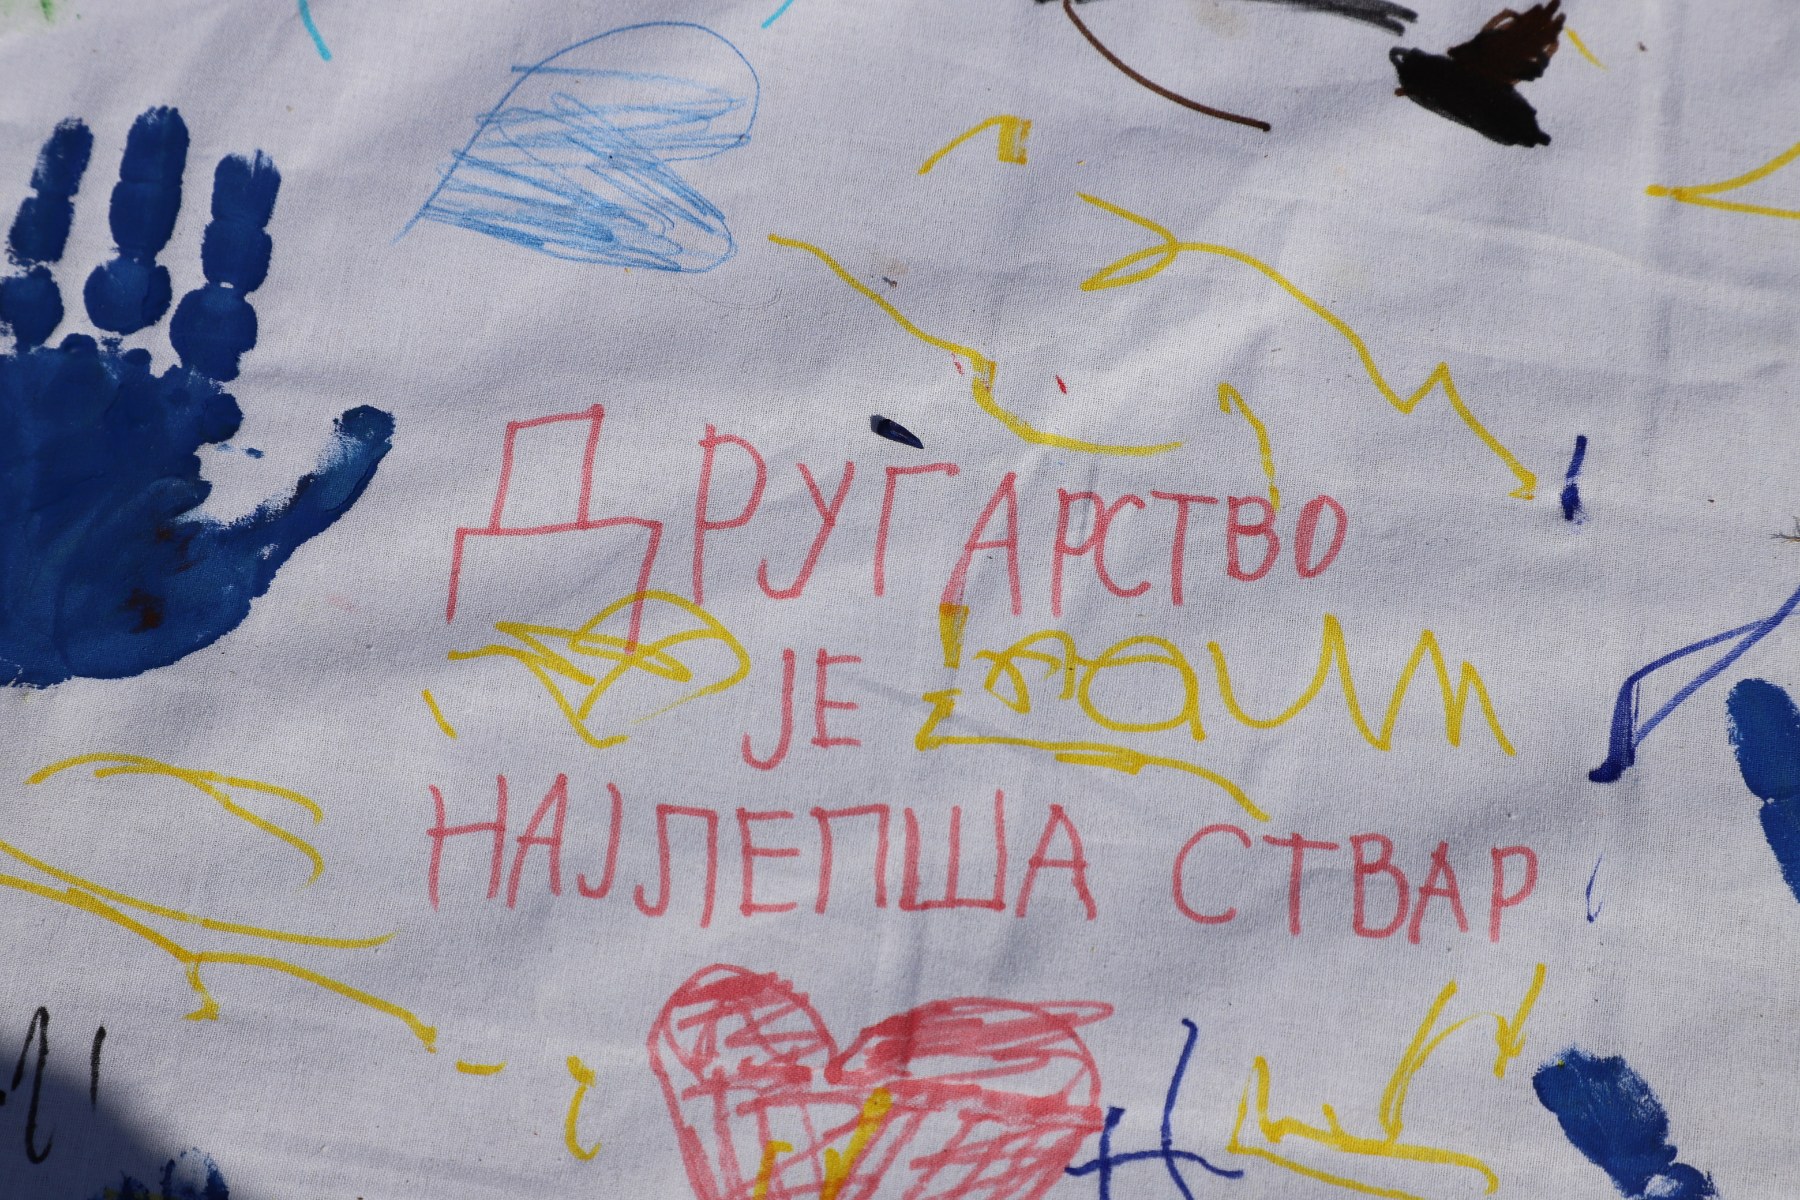 ДРУГАРСТВО
ЈЕ
НАЈЛЕПША СТВАР